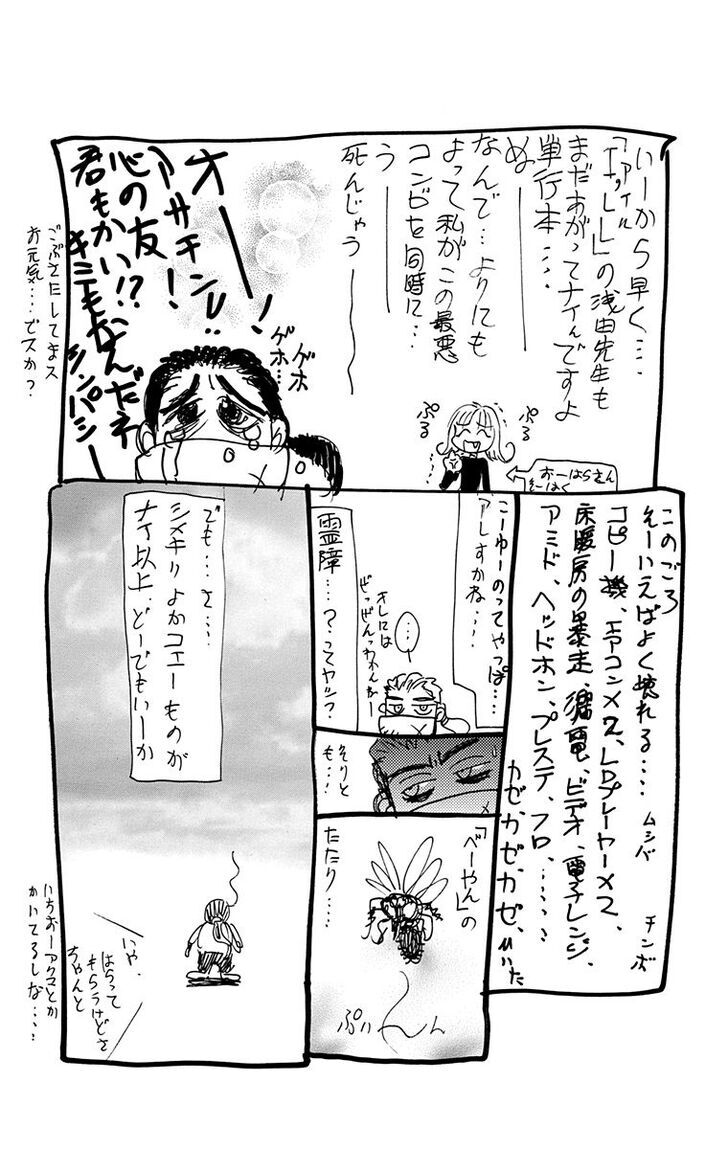 いーから早く…
「アイル」の浅田先生も
まだあがってナイんですよ
単行本…
ぬ——
なんで…よりにも
よって私がこの最悪
コンビを同時に…
う——
死んじゃう——
ぷる
ぷる
おーはらさん
そーはく
オ——!
「アサチン」!!
心の友!
君もかい!?
キミもなんだネ
シンパシー
ゲホ
ゲホ…
ごぶさたしてまス
お元気…ですか?
このごろ
そーいえばよく壊れる…
コピー機、エアコン×2、LDプレーヤー×2、
床暖房の暴走、漏電、ビデオ、電子レンジ、
アミド、ヘッドホン、プレステ、フロ、……
カゼ、カゼ、カゼ、
ムシバ
チンボ
こーゆーのってやっぱ…
アレすかね…
霊障…?ってヤツ?
…
オレには
ぜっぜんっわかんねー
それとも…!
「べーやん」の
たたり…
ぷぃ〜んん
でも…さ…
シメキリよかコエーものが
ナイ以上、どーでもいーか
いや、
はらって
もらうけどさ
ちゃんと
いちおーアクマとか
かいてるしな…